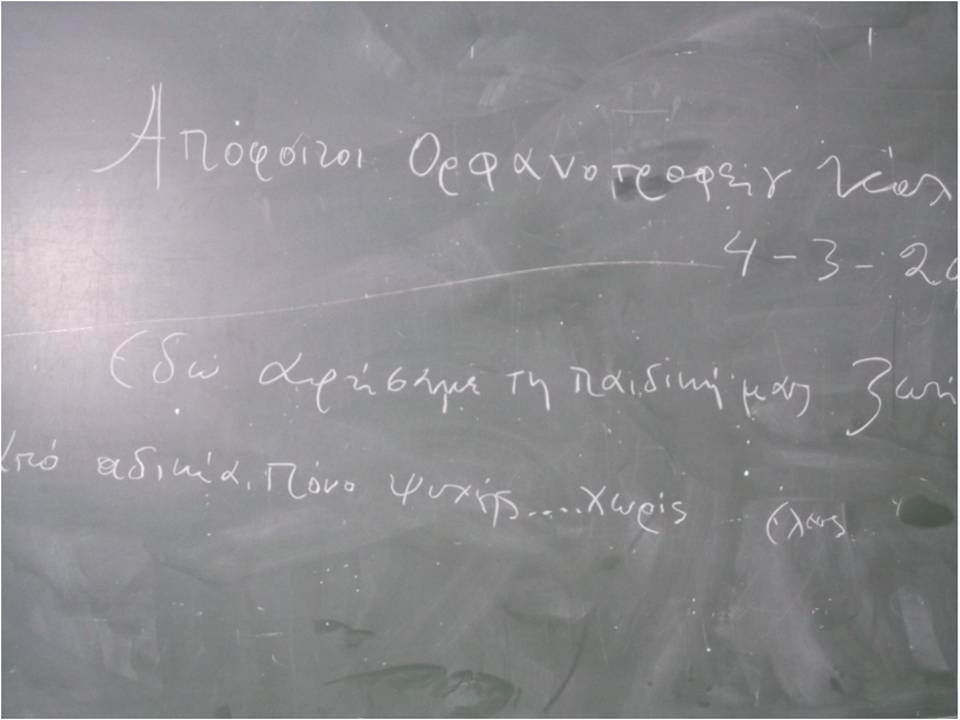 Απόφοιτοι Ορφανοτροφείου
4-3-20
Εδώ αφήσαμε τη παιδική μας ζωή
από αδικία. Πόνο ψυχής....χωρίς έλεος